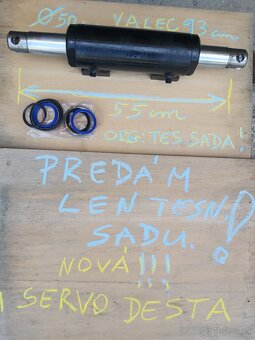 Ø50 VALEC 93 cm
55cm
ORG: TES SADA!
PREDÁM
LEN TESN.
SADU.!
NOVÁ!!!
SERVO DESTA